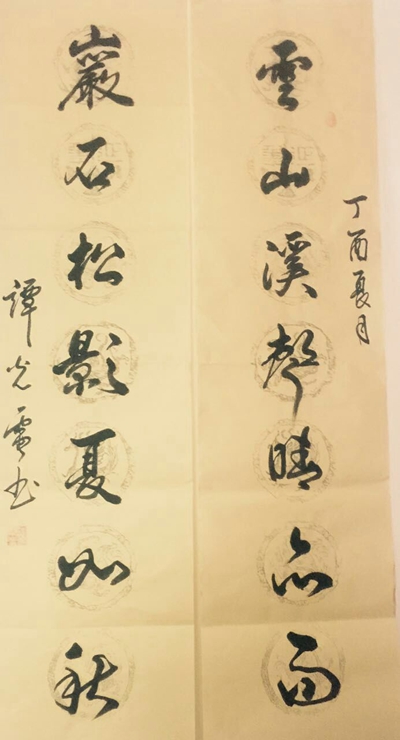 丁酉夏月
雲山溪聲晴亦雨
巖石松影夏如秋
譚光雷书